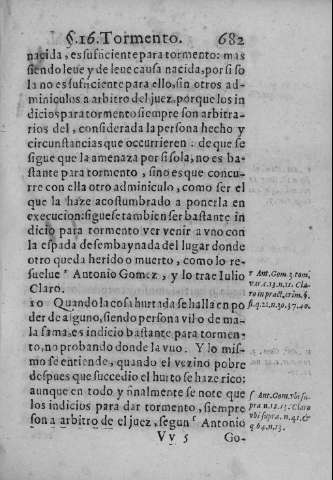 §.16. Tormento. 682
nacida, es suficiente para tormento: mas
siendo leue y de leue causa nacida, por si so
la no es suficiente para ello, sin otros ad-
miniculos a arbitro del juez, porque los in
dicios para tormento siempre son arbitra-
rios del, considerada la persona hecho y
circunstancias que occurrieren: de que se
sigue que la amenaza por si sola, no es ba-
stante para tormento, sino es que concu-
rre con ella otro adminiculo, como ser el
que la haze acostumbrado a ponerla en
execucion: siguese tambien ser bastante in
dicio para tormento ver venir a vno con
la espada desembaynada del lugar donde
otro queda herido o muerto, como lo re-
suelue r Antonio Gomez, y lo trae Iulio
Claro.
r Ant. Gom. 3. tom.
var. c. 13. n. 11. Cla-
ro in pract. crim. §.
fi. q. 21. n. 30. 37. 40.
10 Quando la cosa hurtada se halla en po
der de alguno, siendo persona vil o de ma-
la fama, es indicio bastante para tormen-
to, no probando donde la vuo. Y lo mis-
mo se entiende, quando el vezino pobre
despues que succedio el hurto se haze rico:
aunque en todo y finalmente se note que
los indicios para dar tormento, siempre
son a arbitro de el juez, segun s Antonio
s Ant. Gom. vbi su-
pra n. 12. 13. Claro
vbi supra. n. 41. &
q. 64. n. 13.
Vv 5 Go-